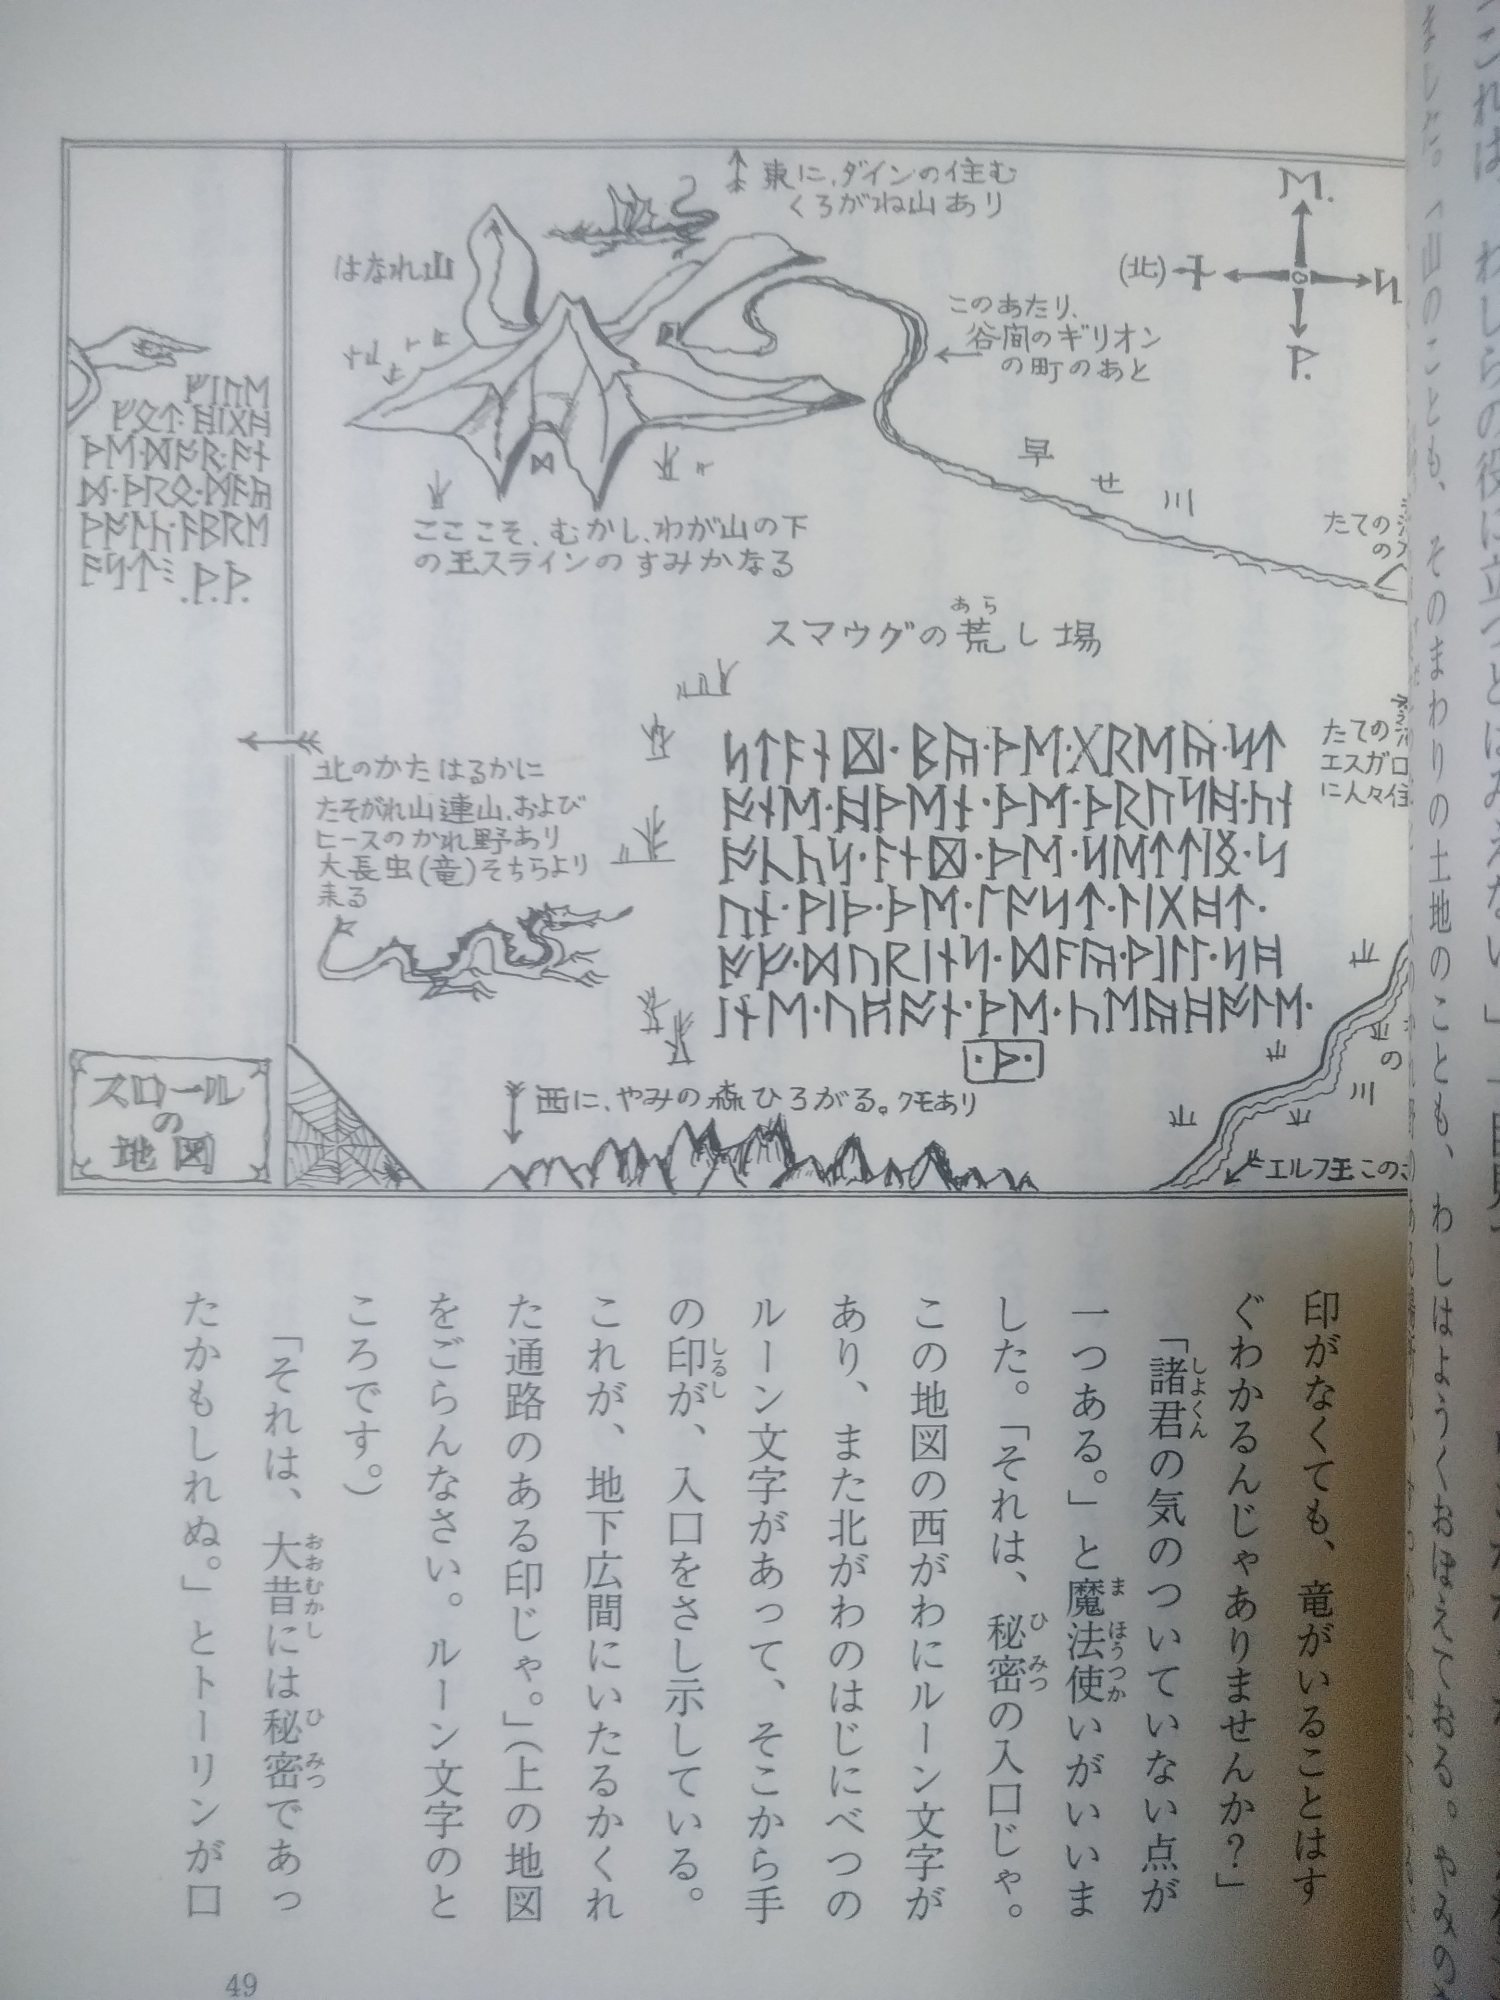 これは、わしらの役に立つとはみえない。」
山のことも、そのまわりの土地のことも、わしはようくおぼえておる。やみの
東に、ダインの住む
くろがね山あり
ᛗ.
(北)
ᛋ
ᚹ.
はなれ山
このあたり、
谷間のギリオン
の町のあと
早せ川
たての
の
ここここそ、むかし、わが山の下
の王スラインのすみかなる
スマウグの荒し場
あら
ᚠᛁᚢᛖ
ᚠᚩᛏ᛫ᚻᛁᚷᚻ
ᚦᛖ᛫ᛞᚩᚱ᛫ᚪᚾ
ᛞ᛫ᚦᚱᛟ᛫ᛗᚪᚣ
ᚹᚪᛚᚳ᛫ᚪᛒᚱᛖ
ᚪᛋᛏ
.ᚦ.ᚦ.
ᛋᛏᚪᚾᛞ᛫ᛒᚣ᛫ᚦᛖ᛫ᚷᚱᛖᚣ᛫ᛋᛏ
ᚩᚾᛖ᛫ᚻᚹᛖᚾ᛫ᚦᛖ᛫ᚦᚱᚢᛋᚻ᛫ᚳᚾ
ᚩᚳᚳᛋ᛫ᚪᚾᛞ᛫ᚦᛖ᛫ᛋᛖᛏᛏᛁᛝ᛫ᛋ
ᚢᚾ᛫ᚹᛁᚦ᛫ᚦᛖ᛫ᛚᚩᛋᛏ᛫ᛚᛁᚷᚻᛏ᛫
ᚩᚠ᛫ᛞᚢᚱᛁᚾᛋ᛫ᛞᚪᚣ᛫ᚹᛁᛚᛚ᛫ᛋᚻ
ᛁᚾᛖ᛫ᚢᛈᚩᚾ᛫ᚦᛖ᛫ᚳᛖᚣᚻᚩᛚᛖ᛫
᛫ᚦ᛫
たての
エスガロ
に人々住
北のかた はるかに
たそがれ山連山、および
ヒースのかれ野あり
大長虫(竜)そちらより
来る
の川
スロール
の
地図
西に、やみの森ひろがる。クモあり
エルフ王この
印がなくても、竜がいることはす
ぐわかるんじゃありませんか？」
「諸君の気のついていない点が
しょくん
一つある。」と魔法使いがいいま
まほうつか
した。「それは、秘密の入口じゃ。
ひみつ
この地図の西がわにルーン文字が
あり、また北がわのはじにべつの
ルーン文字があって、そこから手
の印が、入口をさし示している。
しるし
これが、地下広間にいたるかくれ
た通路のある印じゃ。」（上の地図
をごらんなさい。ルーン文字のと
ころです。）
「それは、大昔には秘密であっ
おおむかし ひみつ
たかもしれぬ。」とトーリンが口
49